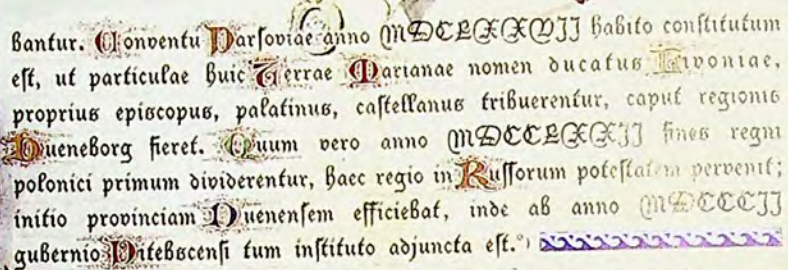 bantur. Conventu Varſoviae anno MDCLXXVII habito conſtitutum
eſt, ut particulae huic Terrae Marianae nomen ducatus Livoniae,
proprius episcopus, palatinus, caſtellanus tribuerentur, caput regionis
Dueneborg fieret. Quum vero anno MDCCLXXII fines regni
polonici primum dividerentur, haec regio in Ruſſorum poteſtatem pervenit;
initio provinciam Duenenſem efficiebat, inde ab anno MDCCCII
gubernio Vitebscenſi tum inſtituto adjuncta eſt.